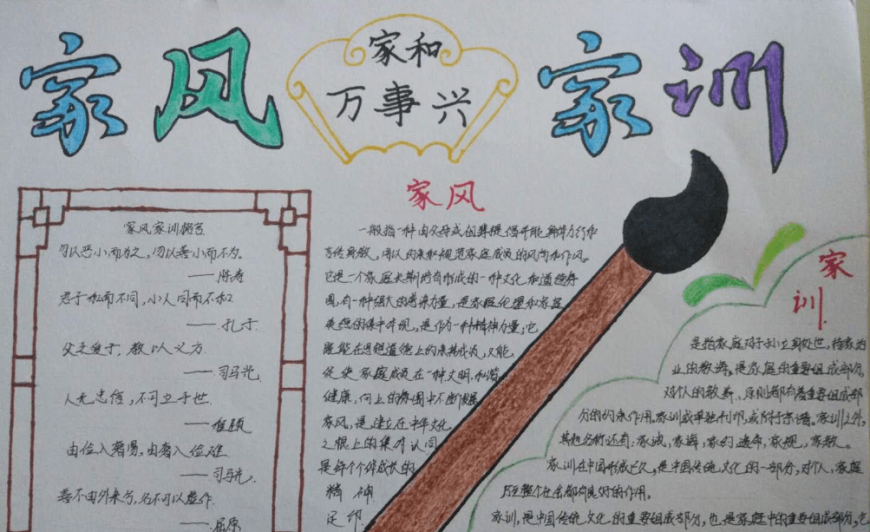 家风
家和
万事兴
家训
家风家训名言
勿以恶小而为之,勿以善小而不为。
——陈寿
君子和而不同,小人同而不和
——孔子
父之爱子,教以义方
——司马光
人无忠信,不可立于世
——程颐
由俭入奢易,由奢入俭难
——司马光
善不由外来兮,名不可以虚作
——屈原
家风
一般指一种由父母或祖辈提倡并能身体力行和
言传身教,用以约束和规范家庭成员的风尚和作风。
它是一个家庭长期培育形成的一种文化和道德氛
围,有一种强大的感染力量,是家庭伦理和家庭
美德的集中体现,是作为一种精神力量,它
既能在思想道德上约束其成员,又能
促使家庭成员在一种文明、和谐、
健康、向上的氛围中不断发展
家风,是建立在中华文化
之根上的集体认同
是每个个体成长的
精神
足印
家训
是指家庭对子孙立身处世、持家治
业的教诲。是家庭的重要组成部分,
对个人的教养、原则都有着重要组成部
分的约束作用。家训或单独刊印,或附于宗谱。家训之外,
其他名称还有:家诫、家诲、家约、遗命、家规、家教。
家训在中国形成已久,是中国传统文化的一部分,对个人、家庭
乃至整个社会都有良好的作用。
家训,是中国传统文化的重要组成部分,也是家庭中的重要组成部分,它